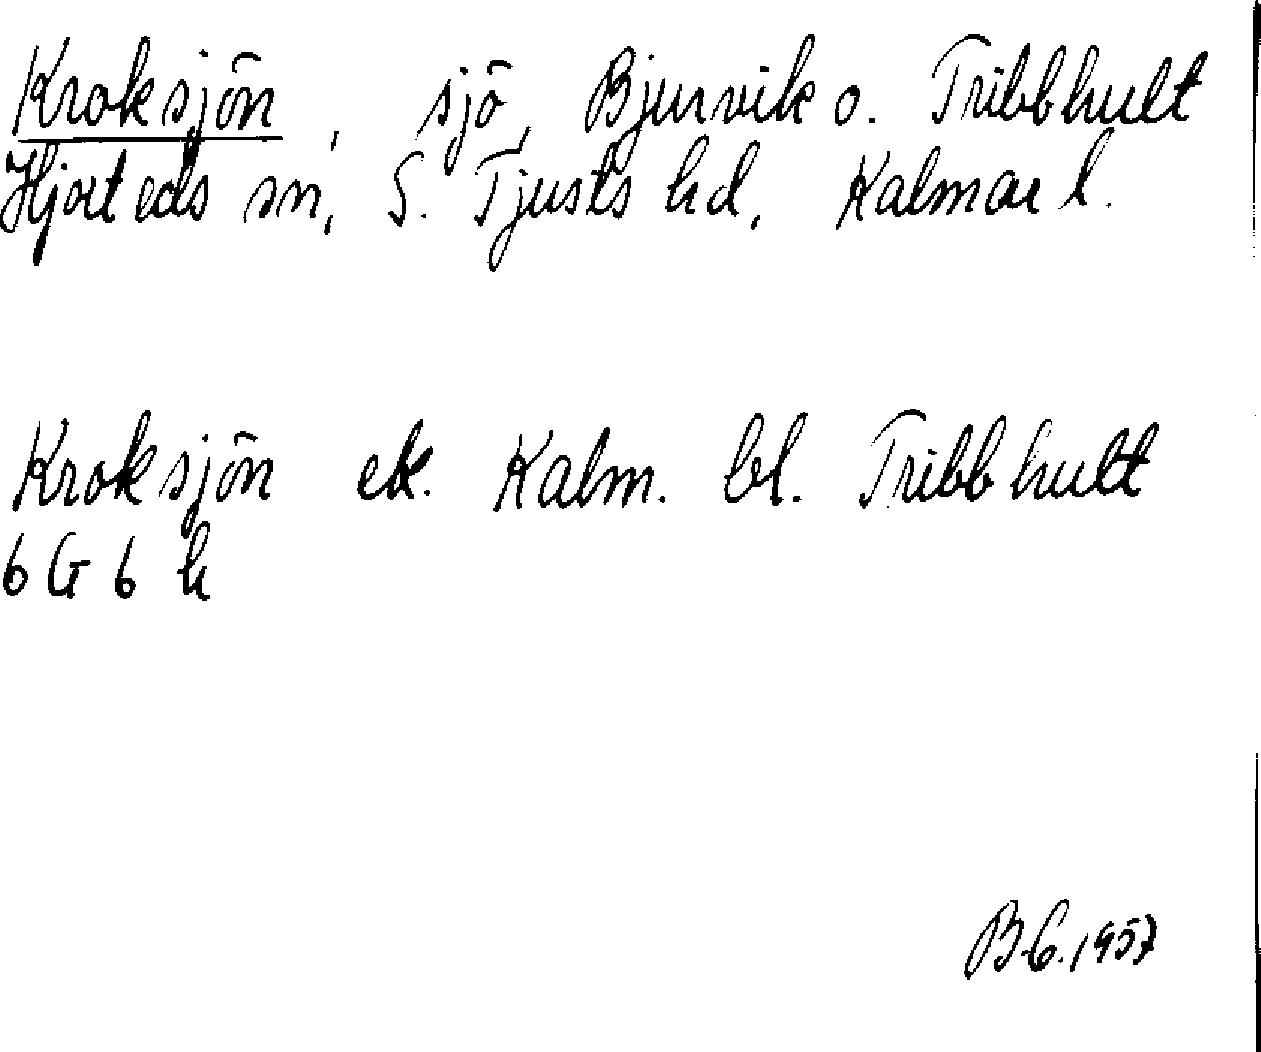 Kroksjön, sjö, Bjurvik o. Tribbhult
Hjorteds sn, S. Tjusts hd, Kalmar l.
Kroksjön ek. Kalm. bl. Tribbhult
6 G 6 h
B.C. 1957